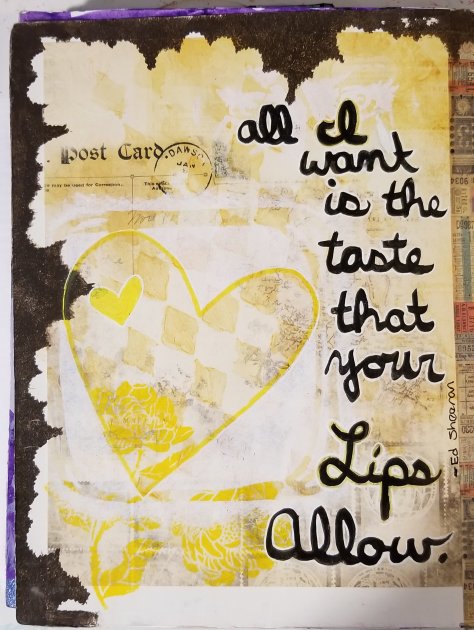 all I
want
is the
taste
that
your
Lips
Allow.
-Ed Sheeran
Post Card
DAWSON
JAN
may be used for Correspon.
This